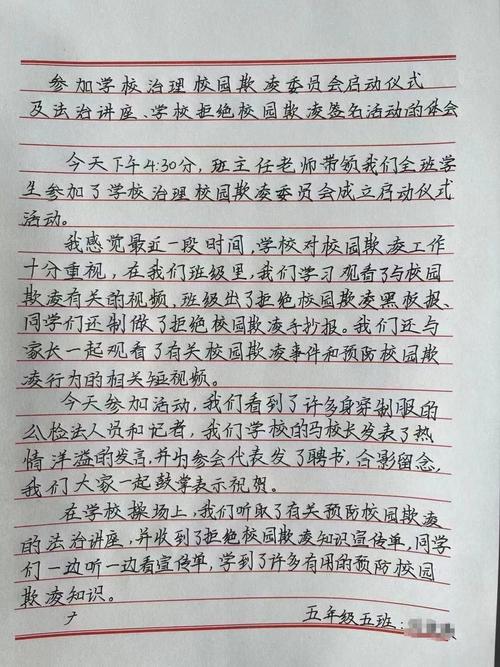 参加学校治理校园欺凌委员会启动仪式
及法治讲座、学校拒绝校园欺凌签名活动的体会
今天下午4:30分，班主任老师带领我们全班学
生参加了学校治理校园欺凌委员会成立启动仪式
活动。
我感觉最近一段时间，学校对校园欺凌工作
十分重视，在我们班级里，我们学习观看了与校园
欺凌有关的视频，班级出了拒绝校园欺凌黑板报、
同学们还制做了拒绝校园欺凌手抄报。我们还与
家长一起观看了有关校园欺凌事件和预防校园欺
凌行为的相关短视频。
今天参加活动，我们看到了许多身穿制服的
公检法人员和记者，我们学校的马校长发表了热
情洋溢的发言，并为参会代表发了聘书，合影留念，
我们大家一起鼓掌表示祝贺。
在学校操场上，我们听取了有关预防校园欺凌
的法治讲座，并收到了拒绝校园欺凌知识宣传单，同学
们一边听一边看宣传单，学到了许多有用的预防校园
欺凌知识。
五年级五班：